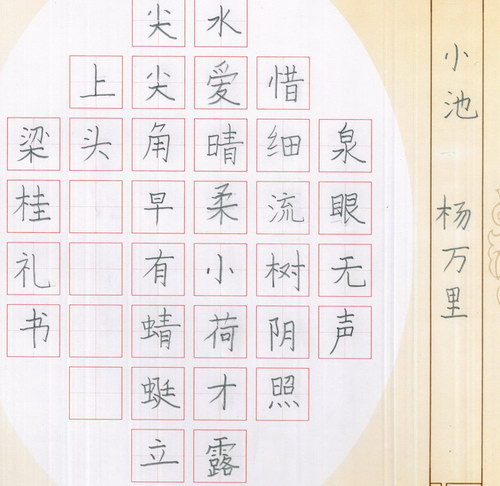 小池 杨万里
泉眼无声
惜细流树阴照
水爱晴柔小荷才露
尖尖角早有蜻蜓立
上头
梁桂礼书